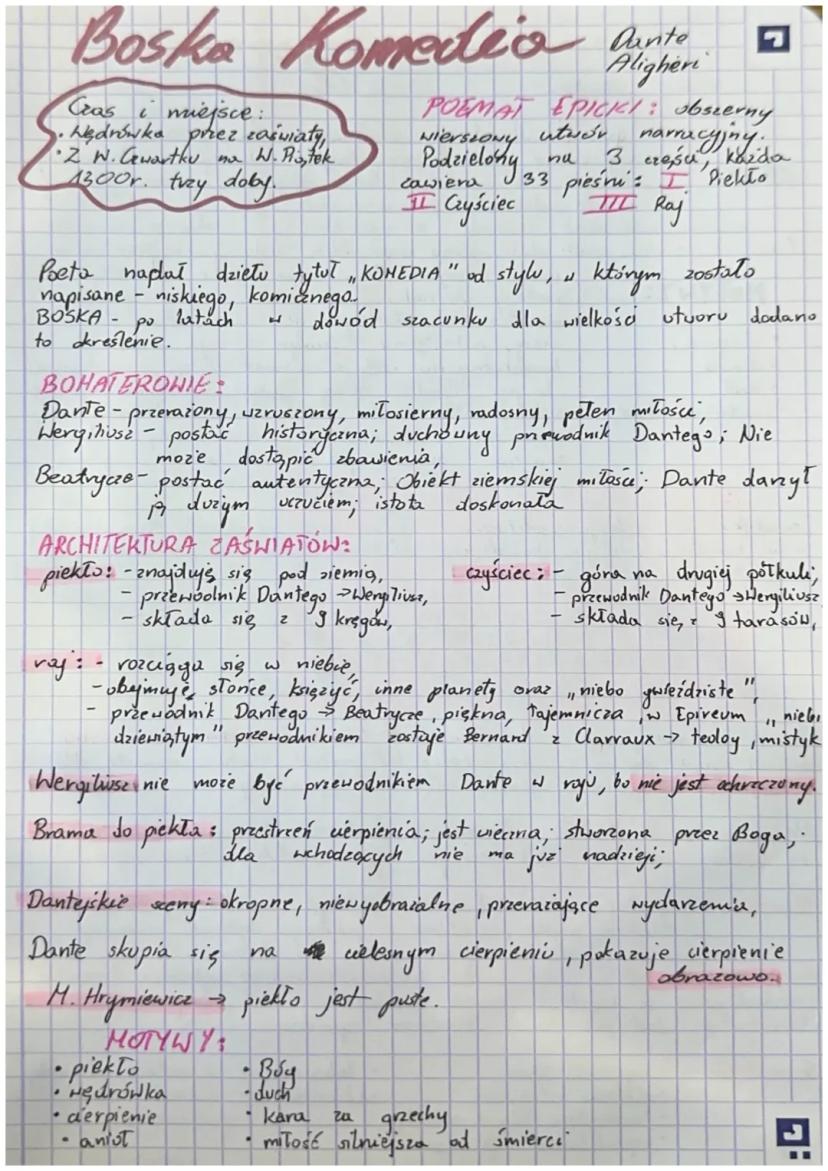 Boska Komedia
Dante
Aligheri
Czas i miejsce:
· Wędrówka przez zaświaty,
· Z W. Czwartku na W. Piątek
1300r. trzy doby.
POEMAT EPICKI: obszerny
wierszowy utwór narracyjny.
Podzielony na 3 części, każda
zawiera 33 pieśni: I Piekło
II Czyściec III Raj
Poeta nadał dziełu tytuł „KOMEDIA" od stylu, w którym zostało
napisane - niskiego, komicznego.
BOSKA - po latach w dowód szacunku dla wielkości utworu dodano
to określenie.
BOHATEROWIE:
Dante - przerażony, wzruszony, miłosierny, radosny, pełen miłości,
Wergiliusz - postać historyczna; duchowny przewodnik Dantego; Nie
może dostąpić zbawienia,
Beatrycze - postać autentyczna; Obiekt ziemskiej miłości; Dante darzył
ją dużym uczuciem; istota doskonała
ARCHITEKTURA ZAŚWIATÓW:
piekło: - znajduję się pod ziemią,
- przewodnik Dantego → Wergiliusz,
- składa się z 9 kręgów,
czyściec: - góra na drugiej półkuli,
- przewodnik Dantego → Wergiliusz
- składa się z 9 tarasów,
raj: - rozciąga się w niebie,
- obejmuje, słońce, księżyć, inne planety oraz „niebo gwieździste",
- przewodnik Dantego → Beatrycze, piękna, tajemnicza, w Epireum „niebi
dziewiątym" przewodnikiem zostaje Bernard z Clarraux → teolog, mistyk
Wergiliusz nie może być przewodnikiem Dante w raju, bo nie jest ochrzczony.
Brama do piekła: przestrzeń cierpienia; jest wieczna; stworzona przez Boga,
dla wchodzących nie ma już nadzieji;
Dantejskie sceny: okropne, niewyobrażalne, przerażające wydarzenia,
Dante skupia się na cielesnym cierpieniu, pokazuje cierpienie
obrazowo.
M. Hrymiewicz → piekło jest puste.
MOTYWY:
· piekło
· wędrówka
· cierpienie
· anioł
· Bóg
· duch
· kara za grzechy
· miłość silniejsza od śmierci